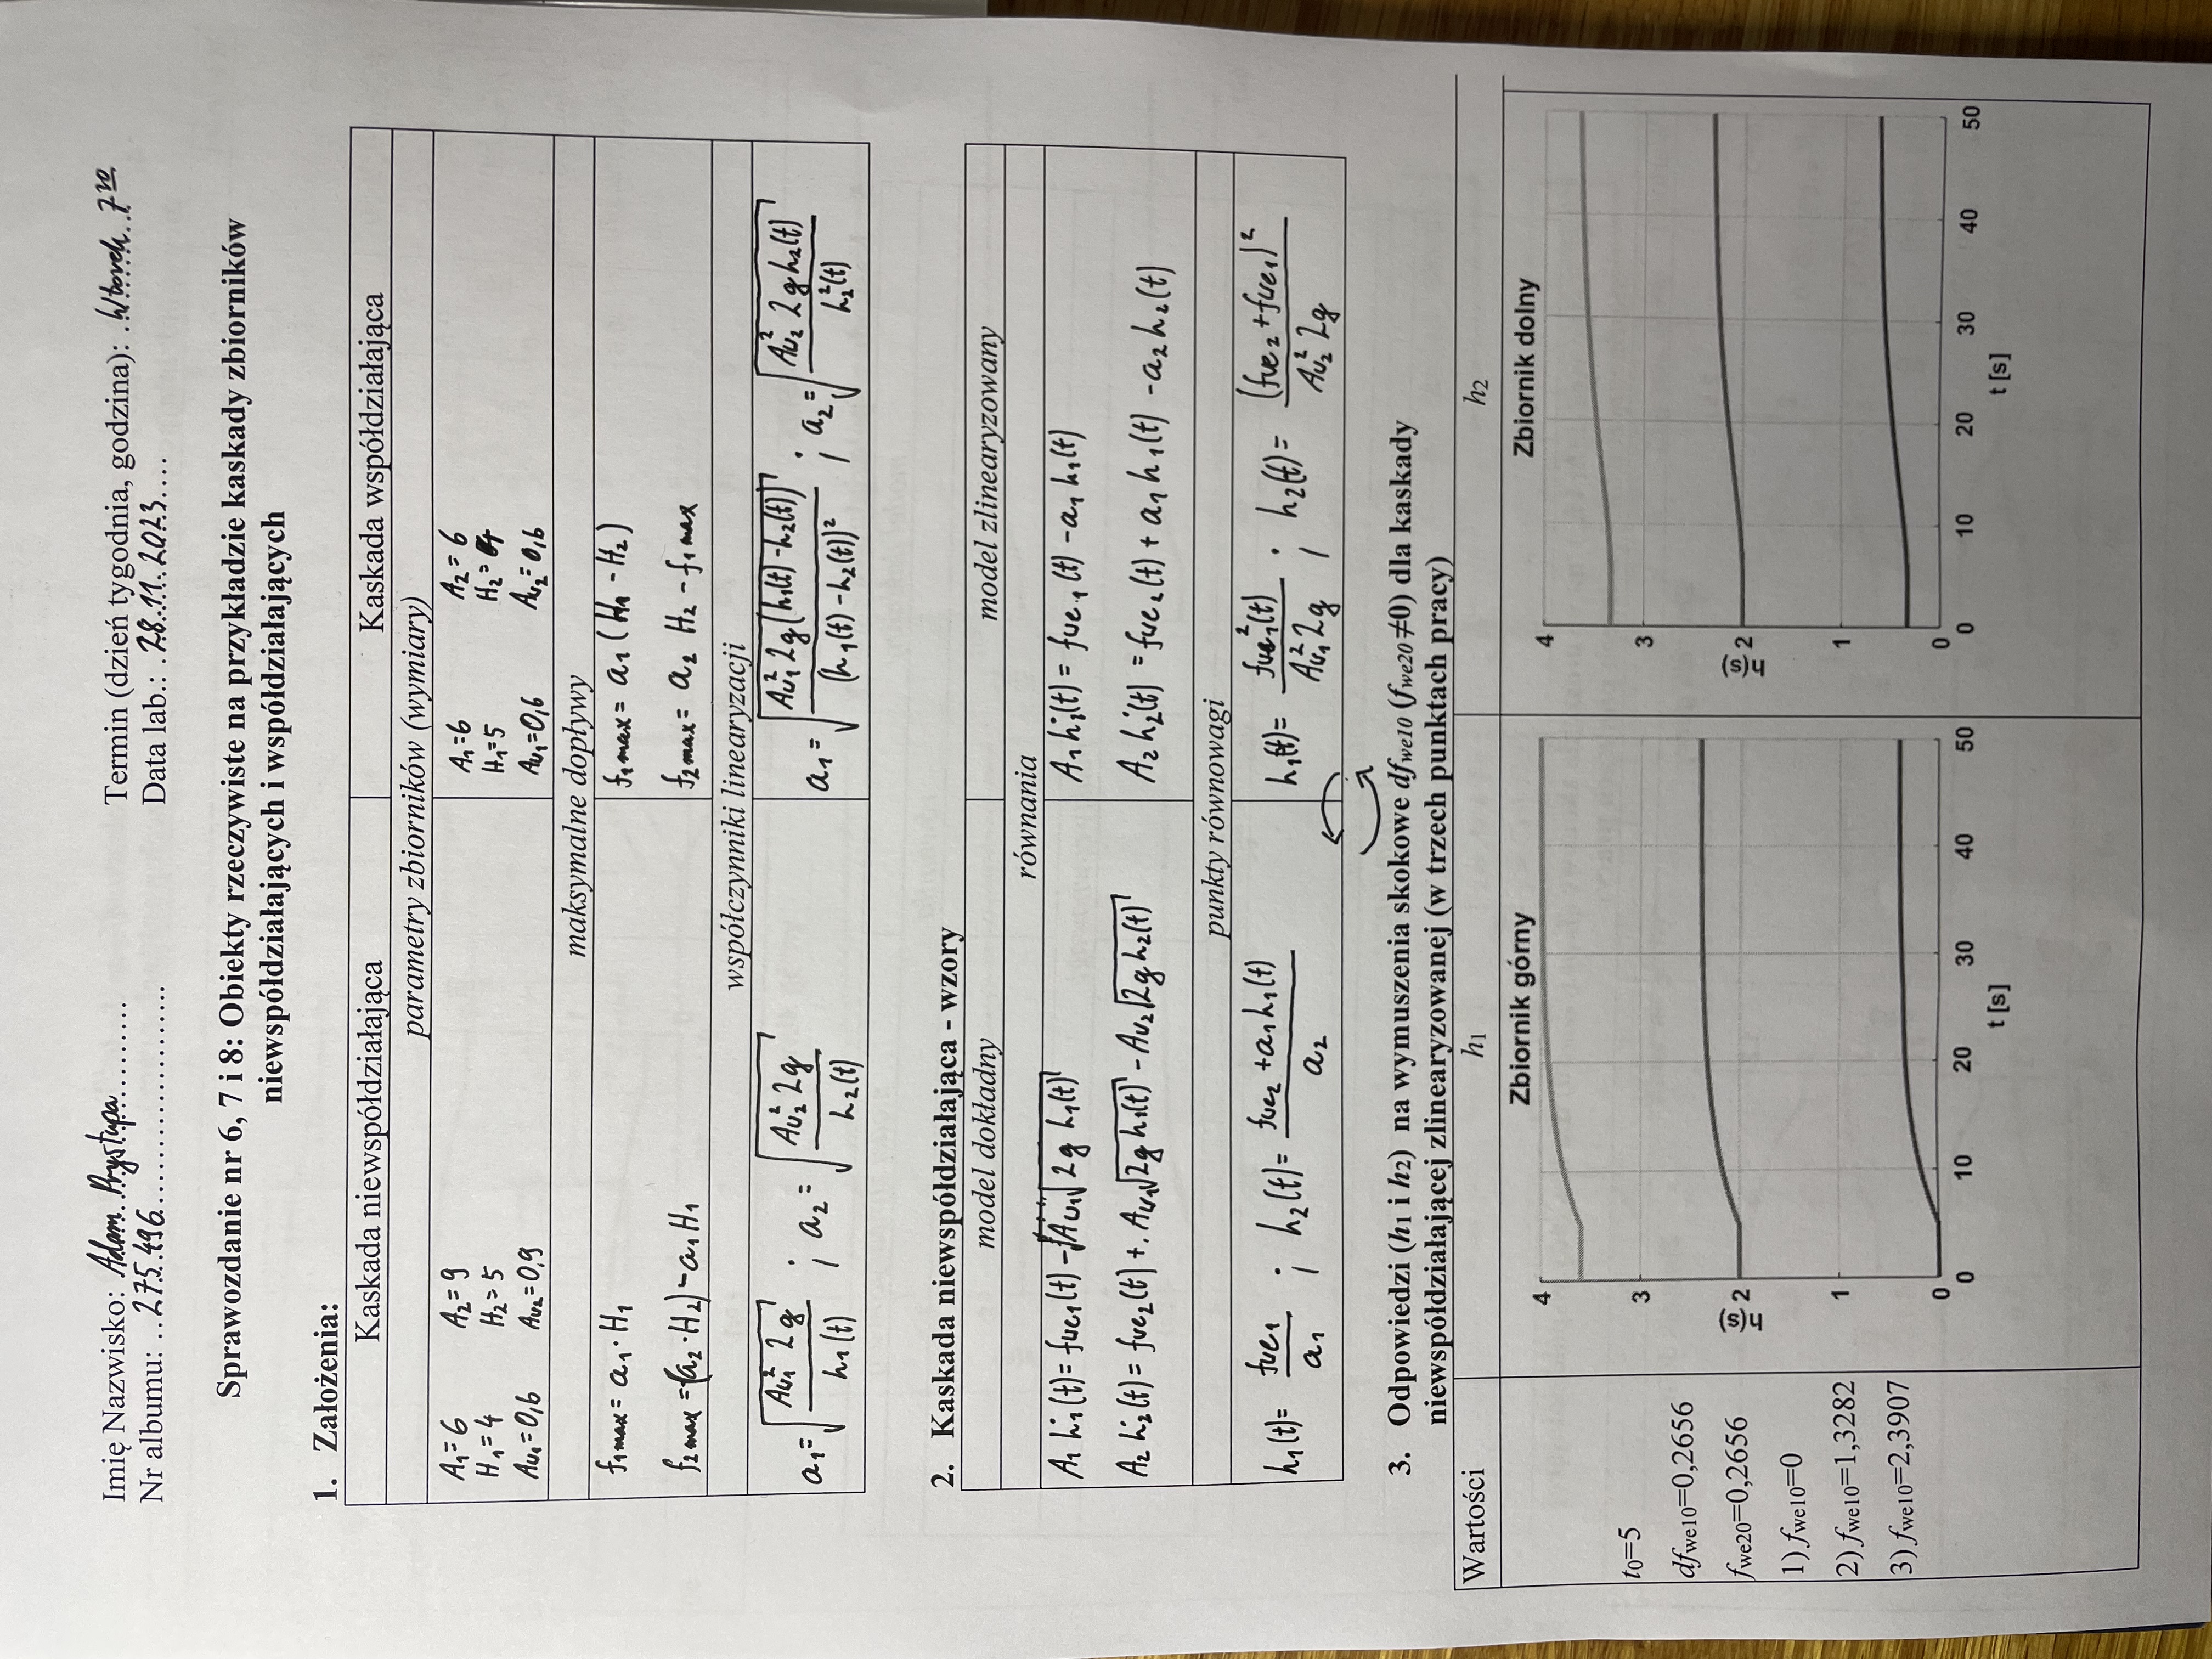 Imię Nazwisko: Adam Prystupa
Termin (dzień tygodnia, godzina): Wtorek 7³⁰
Nr albumu: 275496
Data lab.: 28.11.2023
Sprawozdanie nr 6, 7 i 8: Obiekty rzeczywiste na przykładzie kaskady zbiorników
niewspółdziałających i współdziałających
1. Założenia:
Kaskada niewspółdziałająca
Kaskada współdziałająca
parametry zbiorników (wymiary)
A₁=6 A₂=9
H₁=4 H₂=5
Aw₁=0,6 Aw₂=0,9
A₁=6 A₂=6
H₁=5 H₂=4
Aw₁=0,6 Aw₂=0,6
maksymalne dopływy
f₁max= a₁·H₁
f₂max=(a₂·H₂)-a₁H₁
f₁max= a₁(H₁-H₂)
f₂max= a₂ H₂-f₁max
współczynniki linearyzacji
a₁=√(Aw₁² 2g / h₁(t)) ; a₂=√(Aw₂² 2g / h₂(t))
a₁=√(Aw₁² 2g(h₁(t)-h₂(t)) / (h₁(t)-h₂(t))²) ; a₂=√(Aw₂² 2gh₂(t) / h₂²(t))
2. Kaskada niewspółdziałająca - wzory
model dokładny
model zlinearyzowany
równania
A₁ḣ₁(t)= fwe₁(t)-Aw₁√(2g h₁(t))
A₂ḣ₂(t)= fwe₂(t)+Aw₁√(2g h₁(t))-Aw₂√(2g h₂(t))
A₁ḣ₁(t)= fwe₁(t)-a₁h₁(t)
A₂ḣ₂(t)=fwe₂(t)+a₁h₁(t)-a₂h₂(t)
punkty równowagi
h₁(t)= fwe₁ / a₁ ; h₂(t)= (fwe₂+a₁h₁(t)) / a₂
h₁(t)= fwe₁²(t) / (Aw₁² 2g) ; h₂(t)= (fwe₂+fwe₁)² / (Aw₂² 2g)
3. Odpowiedzi (h1 i h2) na wymuszenia skokowe dfwe10 (fwe20≠0) dla kaskady
niewspółdziałającej zlinearyzowanej (w trzech punktach pracy)
Wartości
h1
h2
t0=5
dfwe10=0,2656
fwe20=0,2656
1) fwe10=0
2) fwe10=1,3282
3) fwe10=2,3907
Zbiornik górny
4
3
2
1
0
h(s)
0 10 20 30 40 50
t [s]
Zbiornik dolny
4
3
2
1
0
h(s)
0 10 20 30 40 50
t [s]